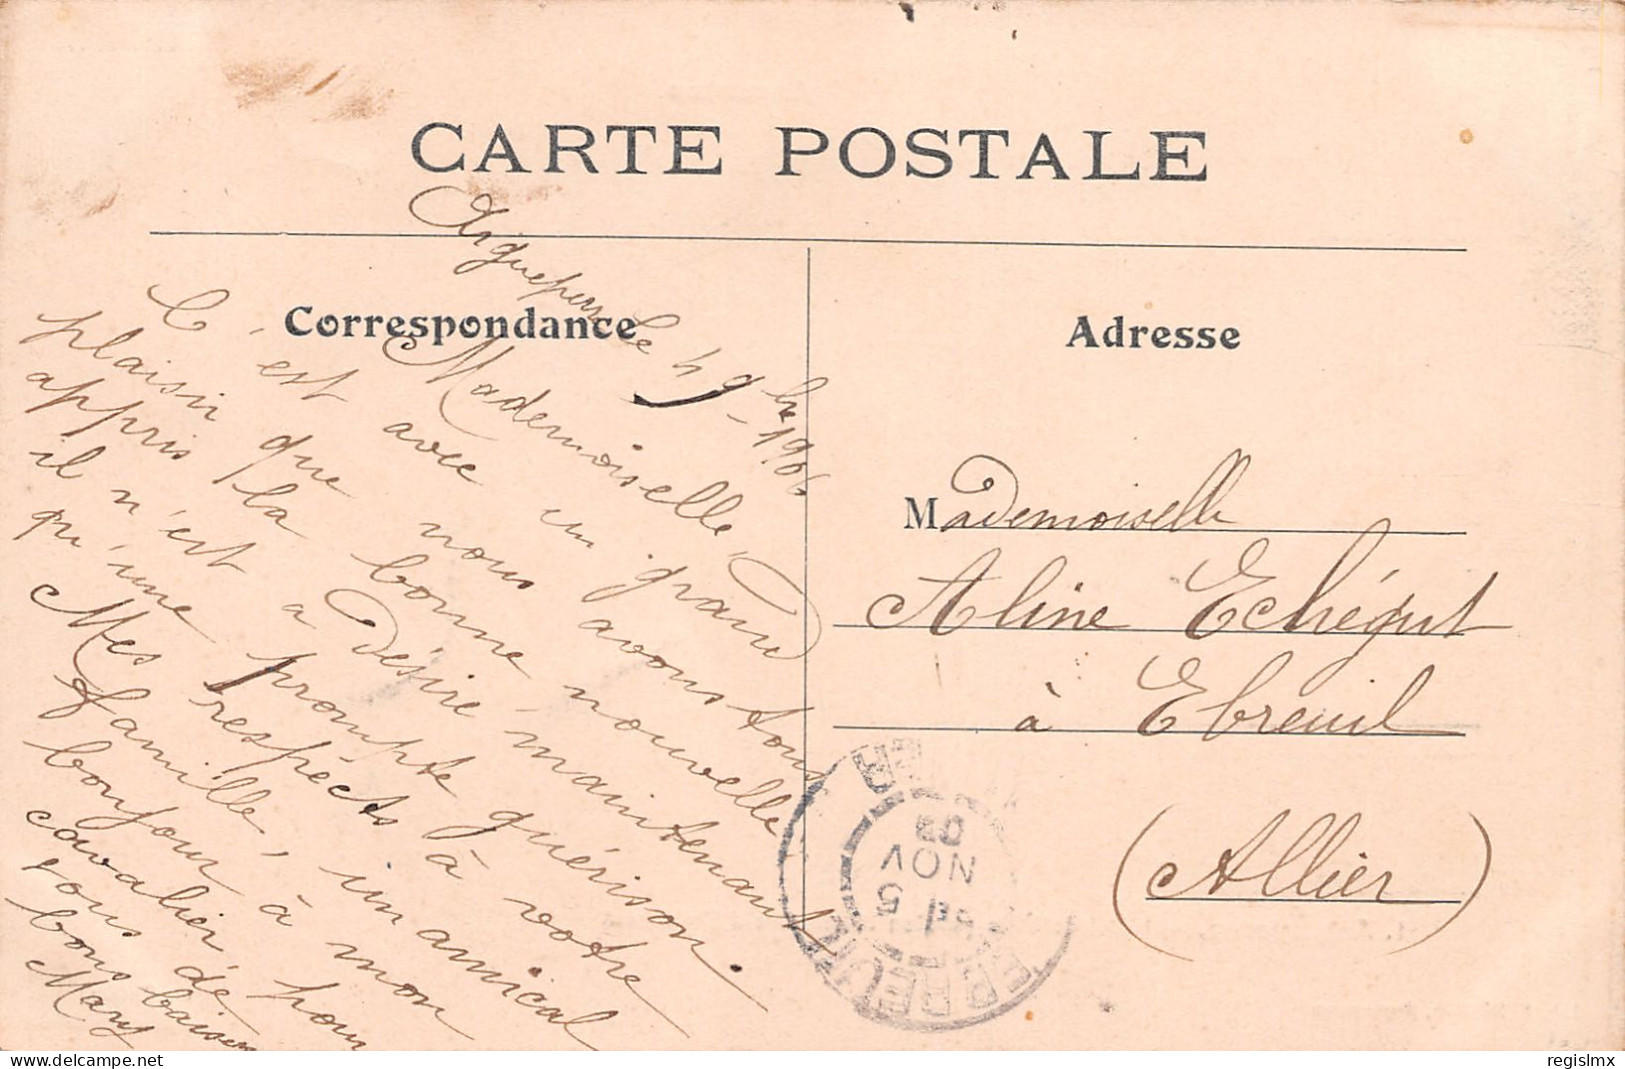 CARTE POSTALE
Correspondance
Adresse
Aigueperse le 4 9bre 1906
Mademoiselle,
C'est avec un grand
plaisir que nous avons tous
appris la bonne nouvelle
il n'est à désirer maintenant
qu'une prompte guérison.
Mes respects à votre
famille, un amical
bonjour à mon
cavalier pour
vous de
bons baisers
Mary
Mademoiselle
Aline Echégut
à Ebreuil
(Allier)
EBREUIL
5
NOV
delcampe.net
regislmx